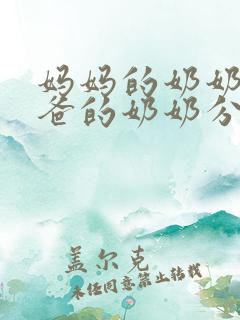 妈妈的奶奶
爸的奶奶分
盖尔克
未经同意禁止转载